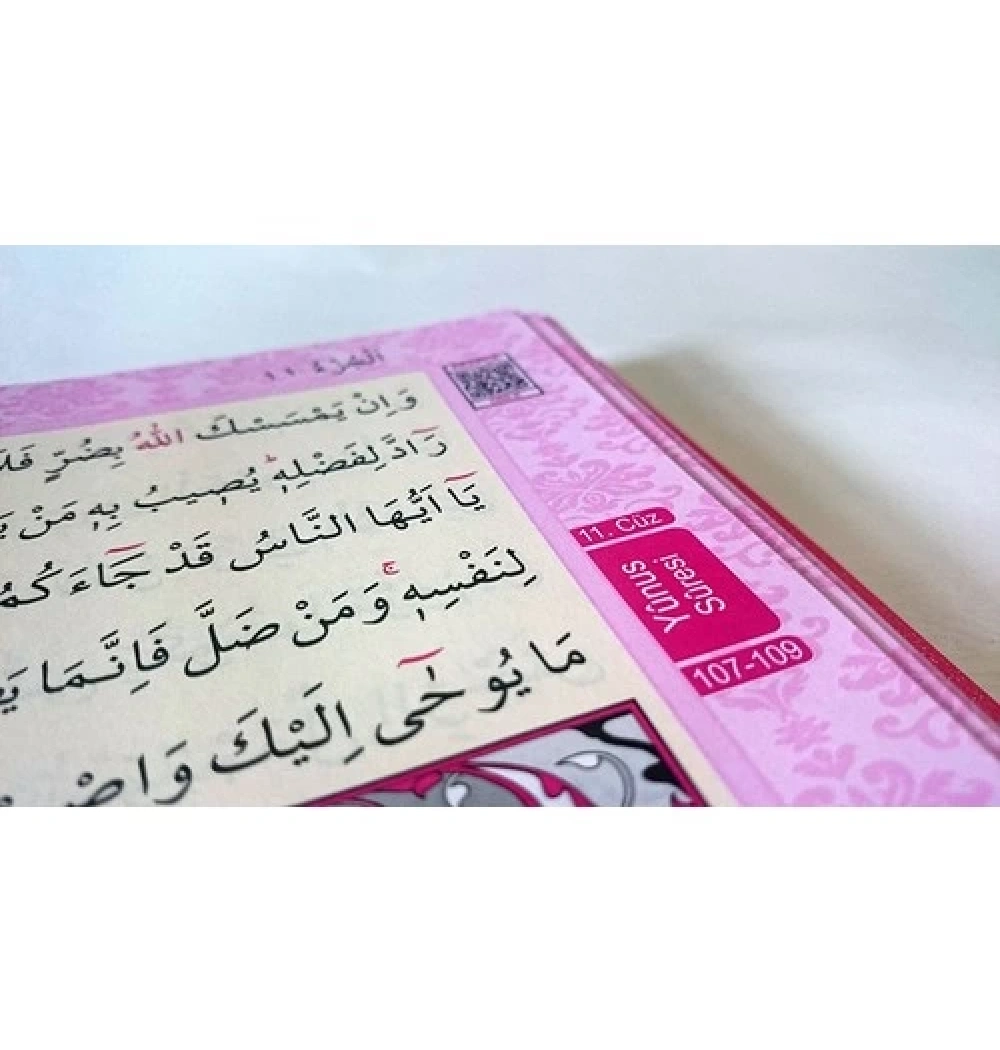 اَلْجُزْءُ ١١
وَاِنْ يَمْسَسْكَ اللّٰهُ بِضُرٍّ فَلَا
رَٓادَّ لِفَضْلِه۪ۜ يُص۪يبُ بِه۪ مَنْ يَ
يَٓا اَيُّهَا النَّاسُ قَدْ جَٓاءَكُمُ
لِنَفْسِه۪ۚ وَمَنْ ضَلَّ فَاِنَّمَا يَ
مَا يُوحٰٓى اِلَيْكَ وَاصْ
11. Cüz
Yûnus
Sûresi
107-109